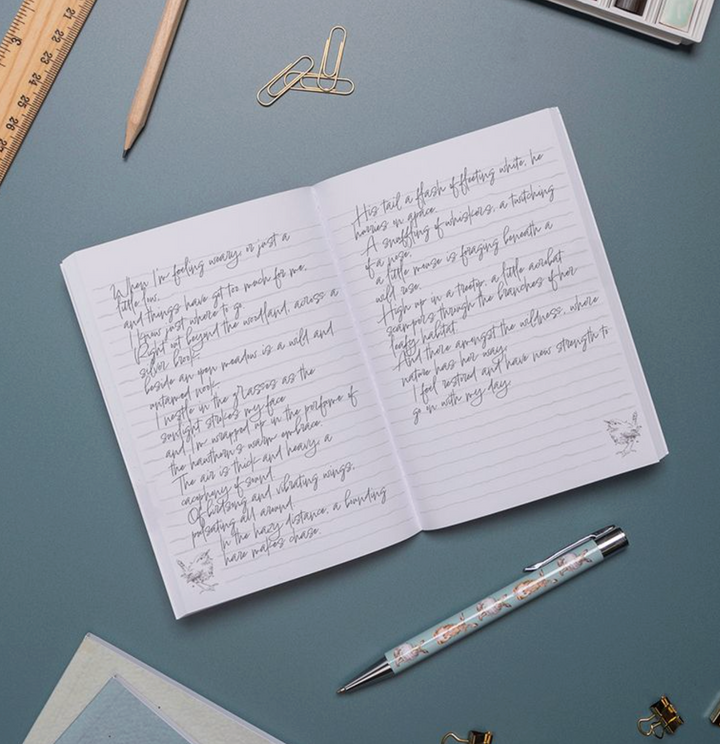 When I'm feeling weary, or just a
little low,
and things have got too much for me,
I know just where to go.
Right out beyond the woodland, across a
silver brook
beside an open meadow is a wild and
untamed nook.
I nestle in the grasses as the
sunlight strokes my face
and I'm wrapped up in the perfume of
the hawthorn's warm embrace.
The air is thick and heavy, a
cacophony of sound
Of birdsong and vibrating wings,
pulsating all around.
In the hazy distance, a bounding
hare makes chase.
His tail a flash of fleeting white, he
hurries in apace.
A snuffling of whiskers, a twitching
of a nose,
a little mouse is foraging beneath a
wild rose.
High up in a treetop, a little acrobat
scampers through the branches of her
leafy habitat.
And there amongst the wildness, where
nature has her way,
I feel restored and have new strength to
go on with my day.
3
21
22
23
24
25
26